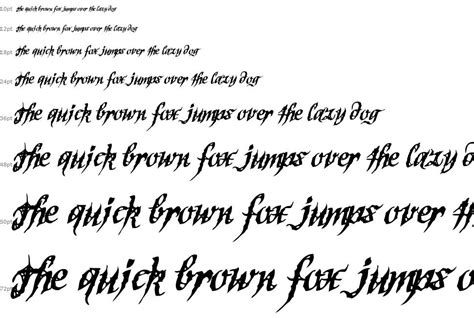 10pt The quick brown fox jumps over the lazy dog
12pt The quick brown fox jumps over the lazy dog
18pt The quick brown fox jumps over the lazy dog
24pt The quick brown fox jumps over the lazy dog
36pt The quick brown fox jumps over the lazy dog
48pt The quick brown fox jumps over the lazy d
60pt The quick brown fox jumps over the
72pt The quick brown fox jumps o